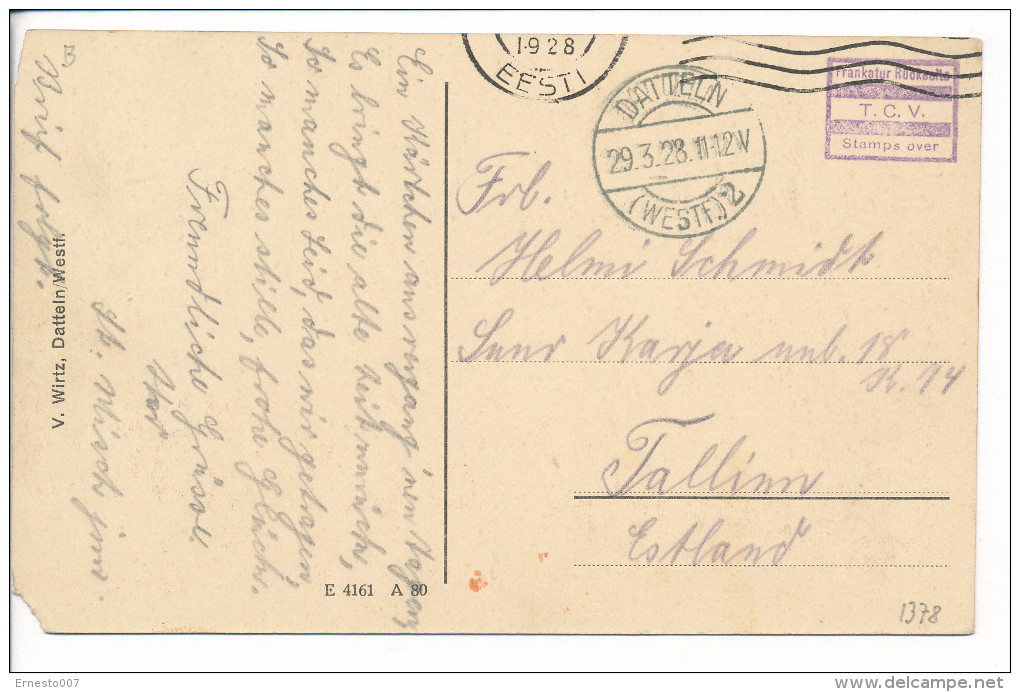 1928
EESTI
DATTELN
29.3.28.11-12V
(WESTF.) 2
Frankatur Rückseite
T. C. V.
Stamps over
Frl.
Helmi Schmidt
Suur Karja 18
K. 14
Tallinn
Estland
Ein Kärtchen aus
Es bringt die alte Zeit zurück,
So manches Leid, das wir getragen
So manches stille, frohe Glück.
Freundliche Grüsse
Brief folgt.
V. Wirtz, Datteln/Westf.
E 4161 A 80
1378
Ernesto007
delcampe.net